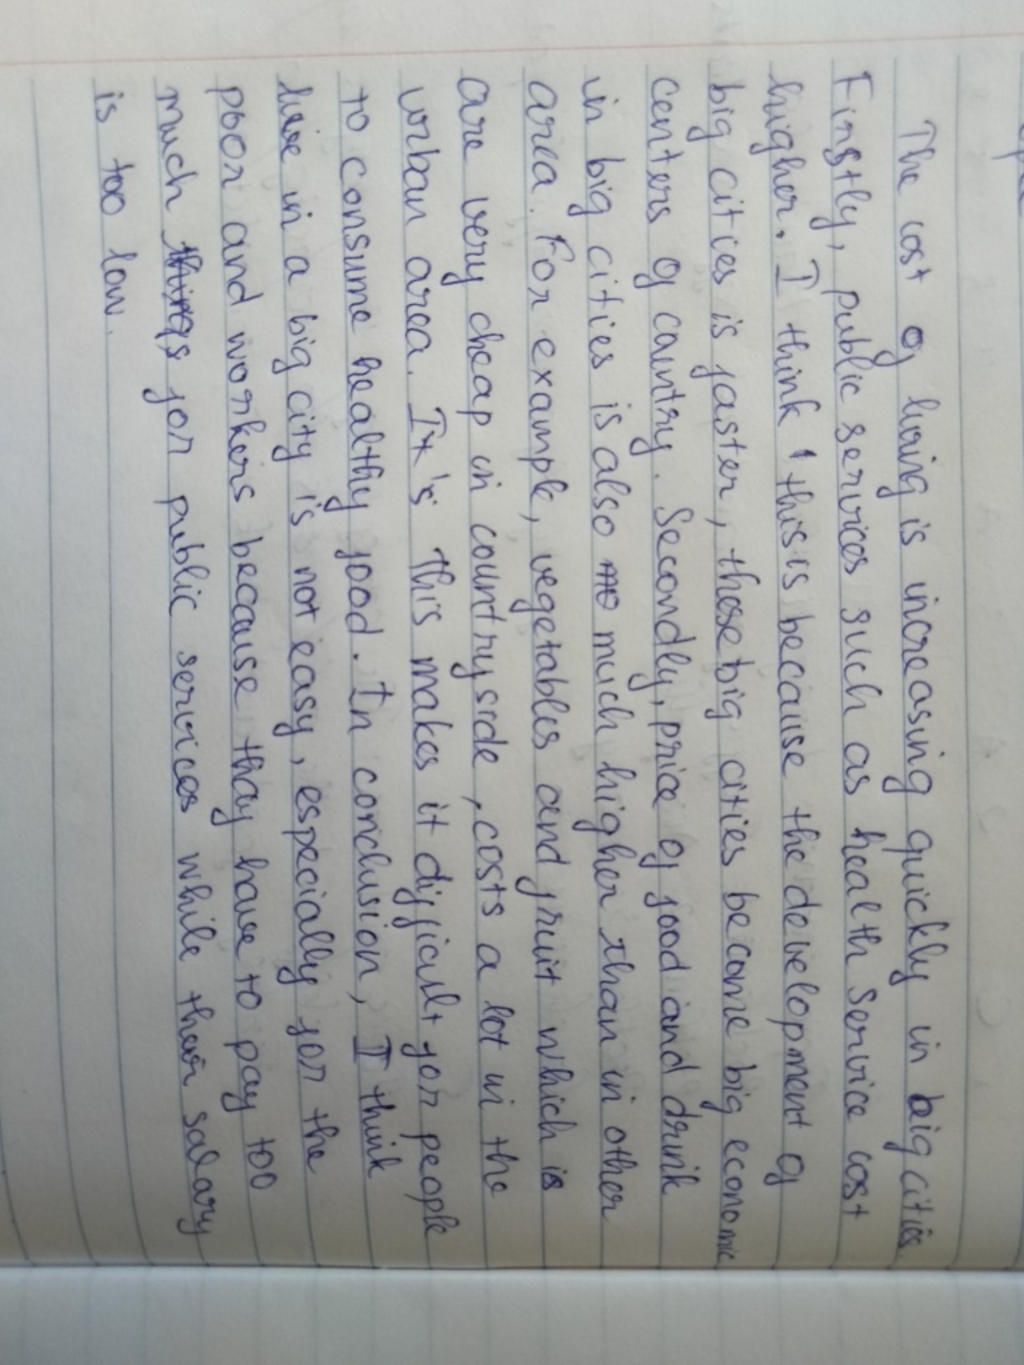 The cost of living is increasing quickly in big cities.
Firstly, public services such as health Service cost
higher. I think this is because the development of
big cities is faster, those big cities become big economic
centers of cantry. Secondly, price of food and drink
in big cities is also much higher than in other
area. For example, vegetables and fruit which is
are very cheap in countryside, costs a lot in the
urban area. It's this makes it difficult for people
to consume healthy food. In conclusion, I think
live in a big city is not easy, especially for the
poor and workers because they have to pay too
much things for public services while their salary
is too low.